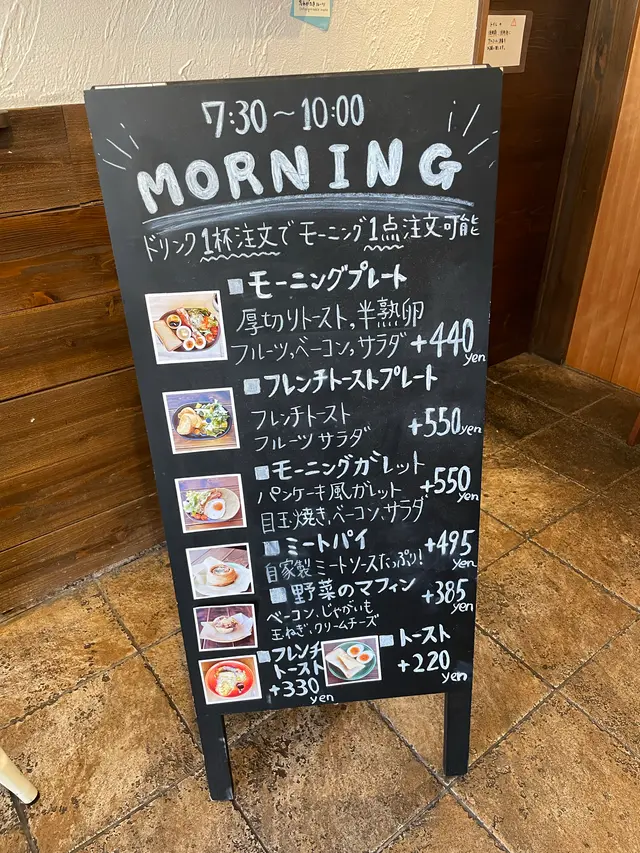 7:30～10:00
MORNING
ドリンク1杯注文でモーニング1点注文可能
モーニングプレート
厚切りトースト,半熟卵
フルーツ,ベーコン,サラダ +440yen
フレンチトーストプレート
フレンチトースト
フルーツサラダ +550yen
モーニングガレット
パンケーキ風ガレット +550yen
目玉焼き,ベーコン,サラダ
ミートパイ +495yen
自家製ミートソースたっぷり!
野菜のマフィン +385yen
ベーコン,じゃがいも
玉ねぎ,クリームチーズ
フレンチ
トースト
+330yen
トースト
+220yen